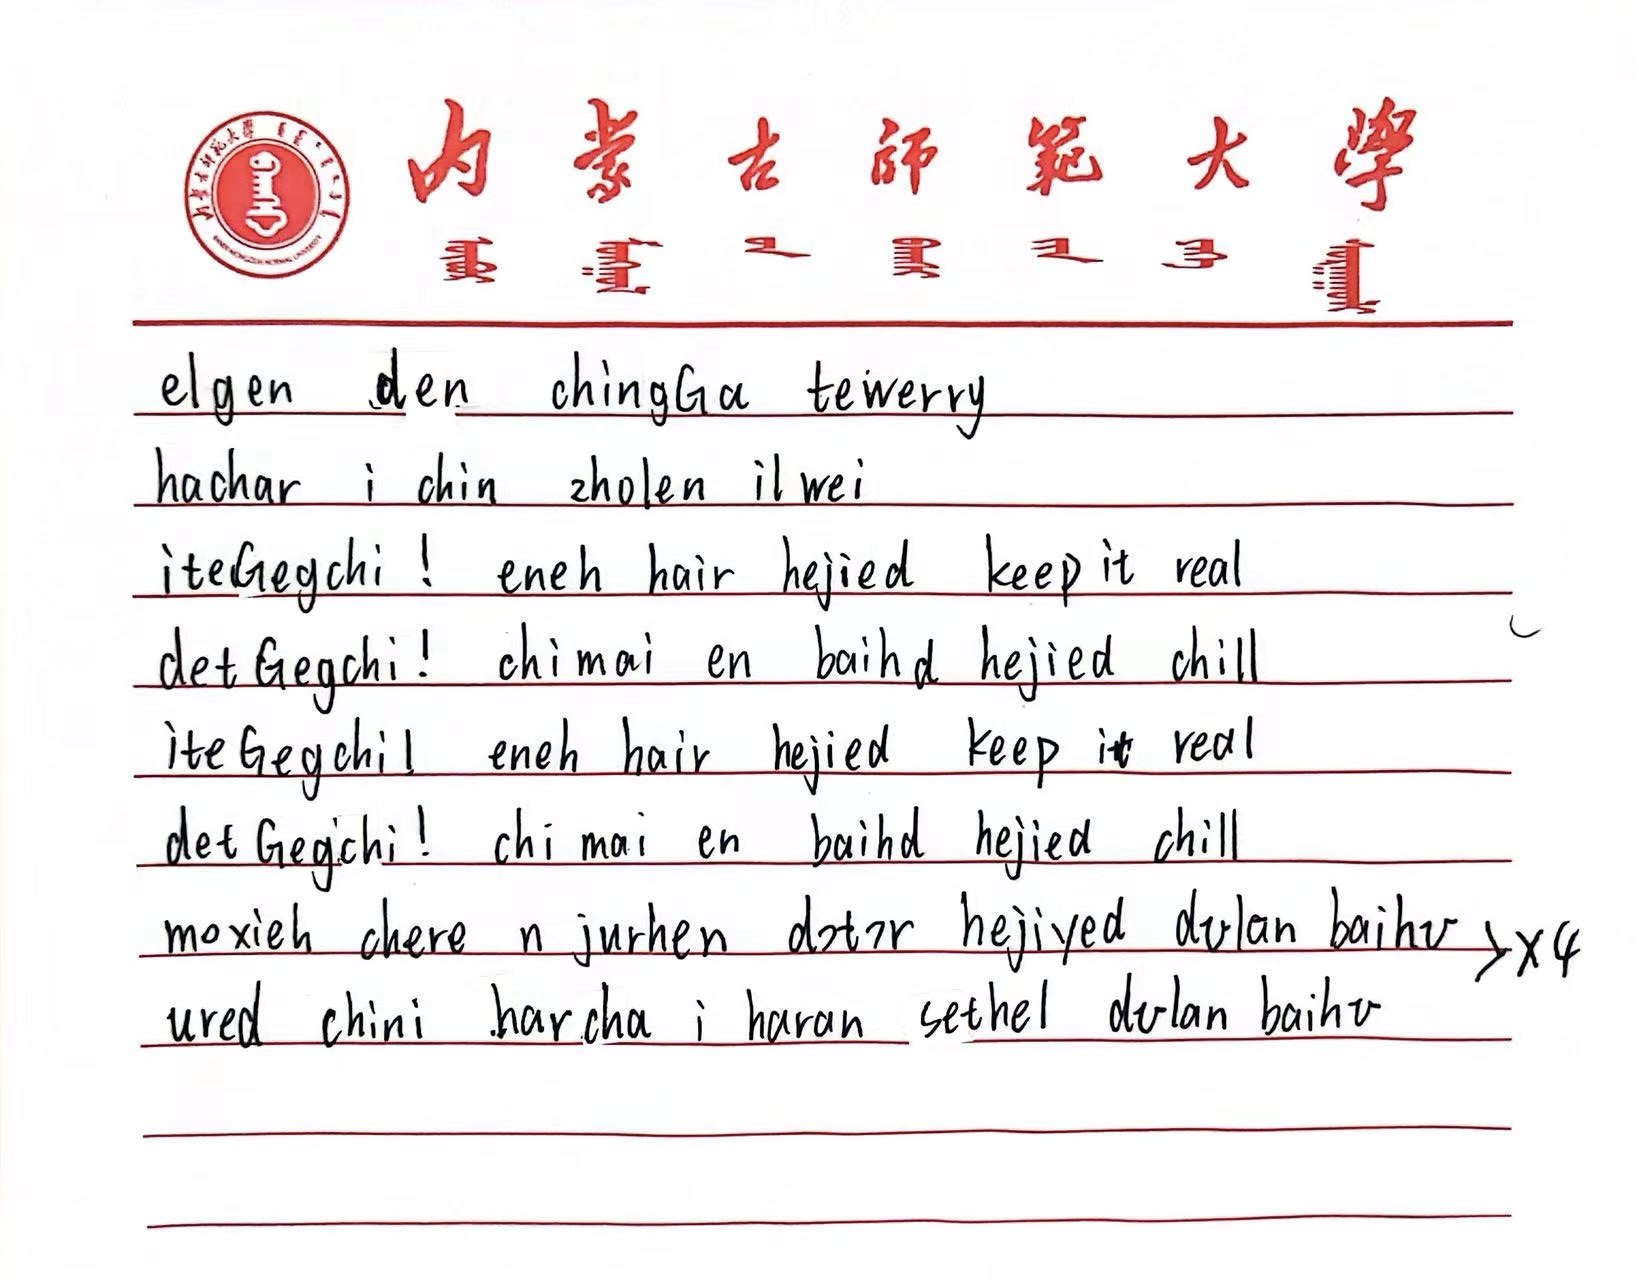 内蒙古師範大學
elgen den chingGa tewerry
hachar i chin zholen ilwei
iteGegchi! eneh hair hejied keep it real
detGegchi! chimai en baihd hejied chill
iteGegchi! eneh hair hejied keep it real
detGegchi! chi mai en baihd hejied chill
moxieh chere n jurhen dɔtɔr hejiyed dʊlan baihʊ >×4
ured chini harcha i haran sethel dʊlan baihʊ